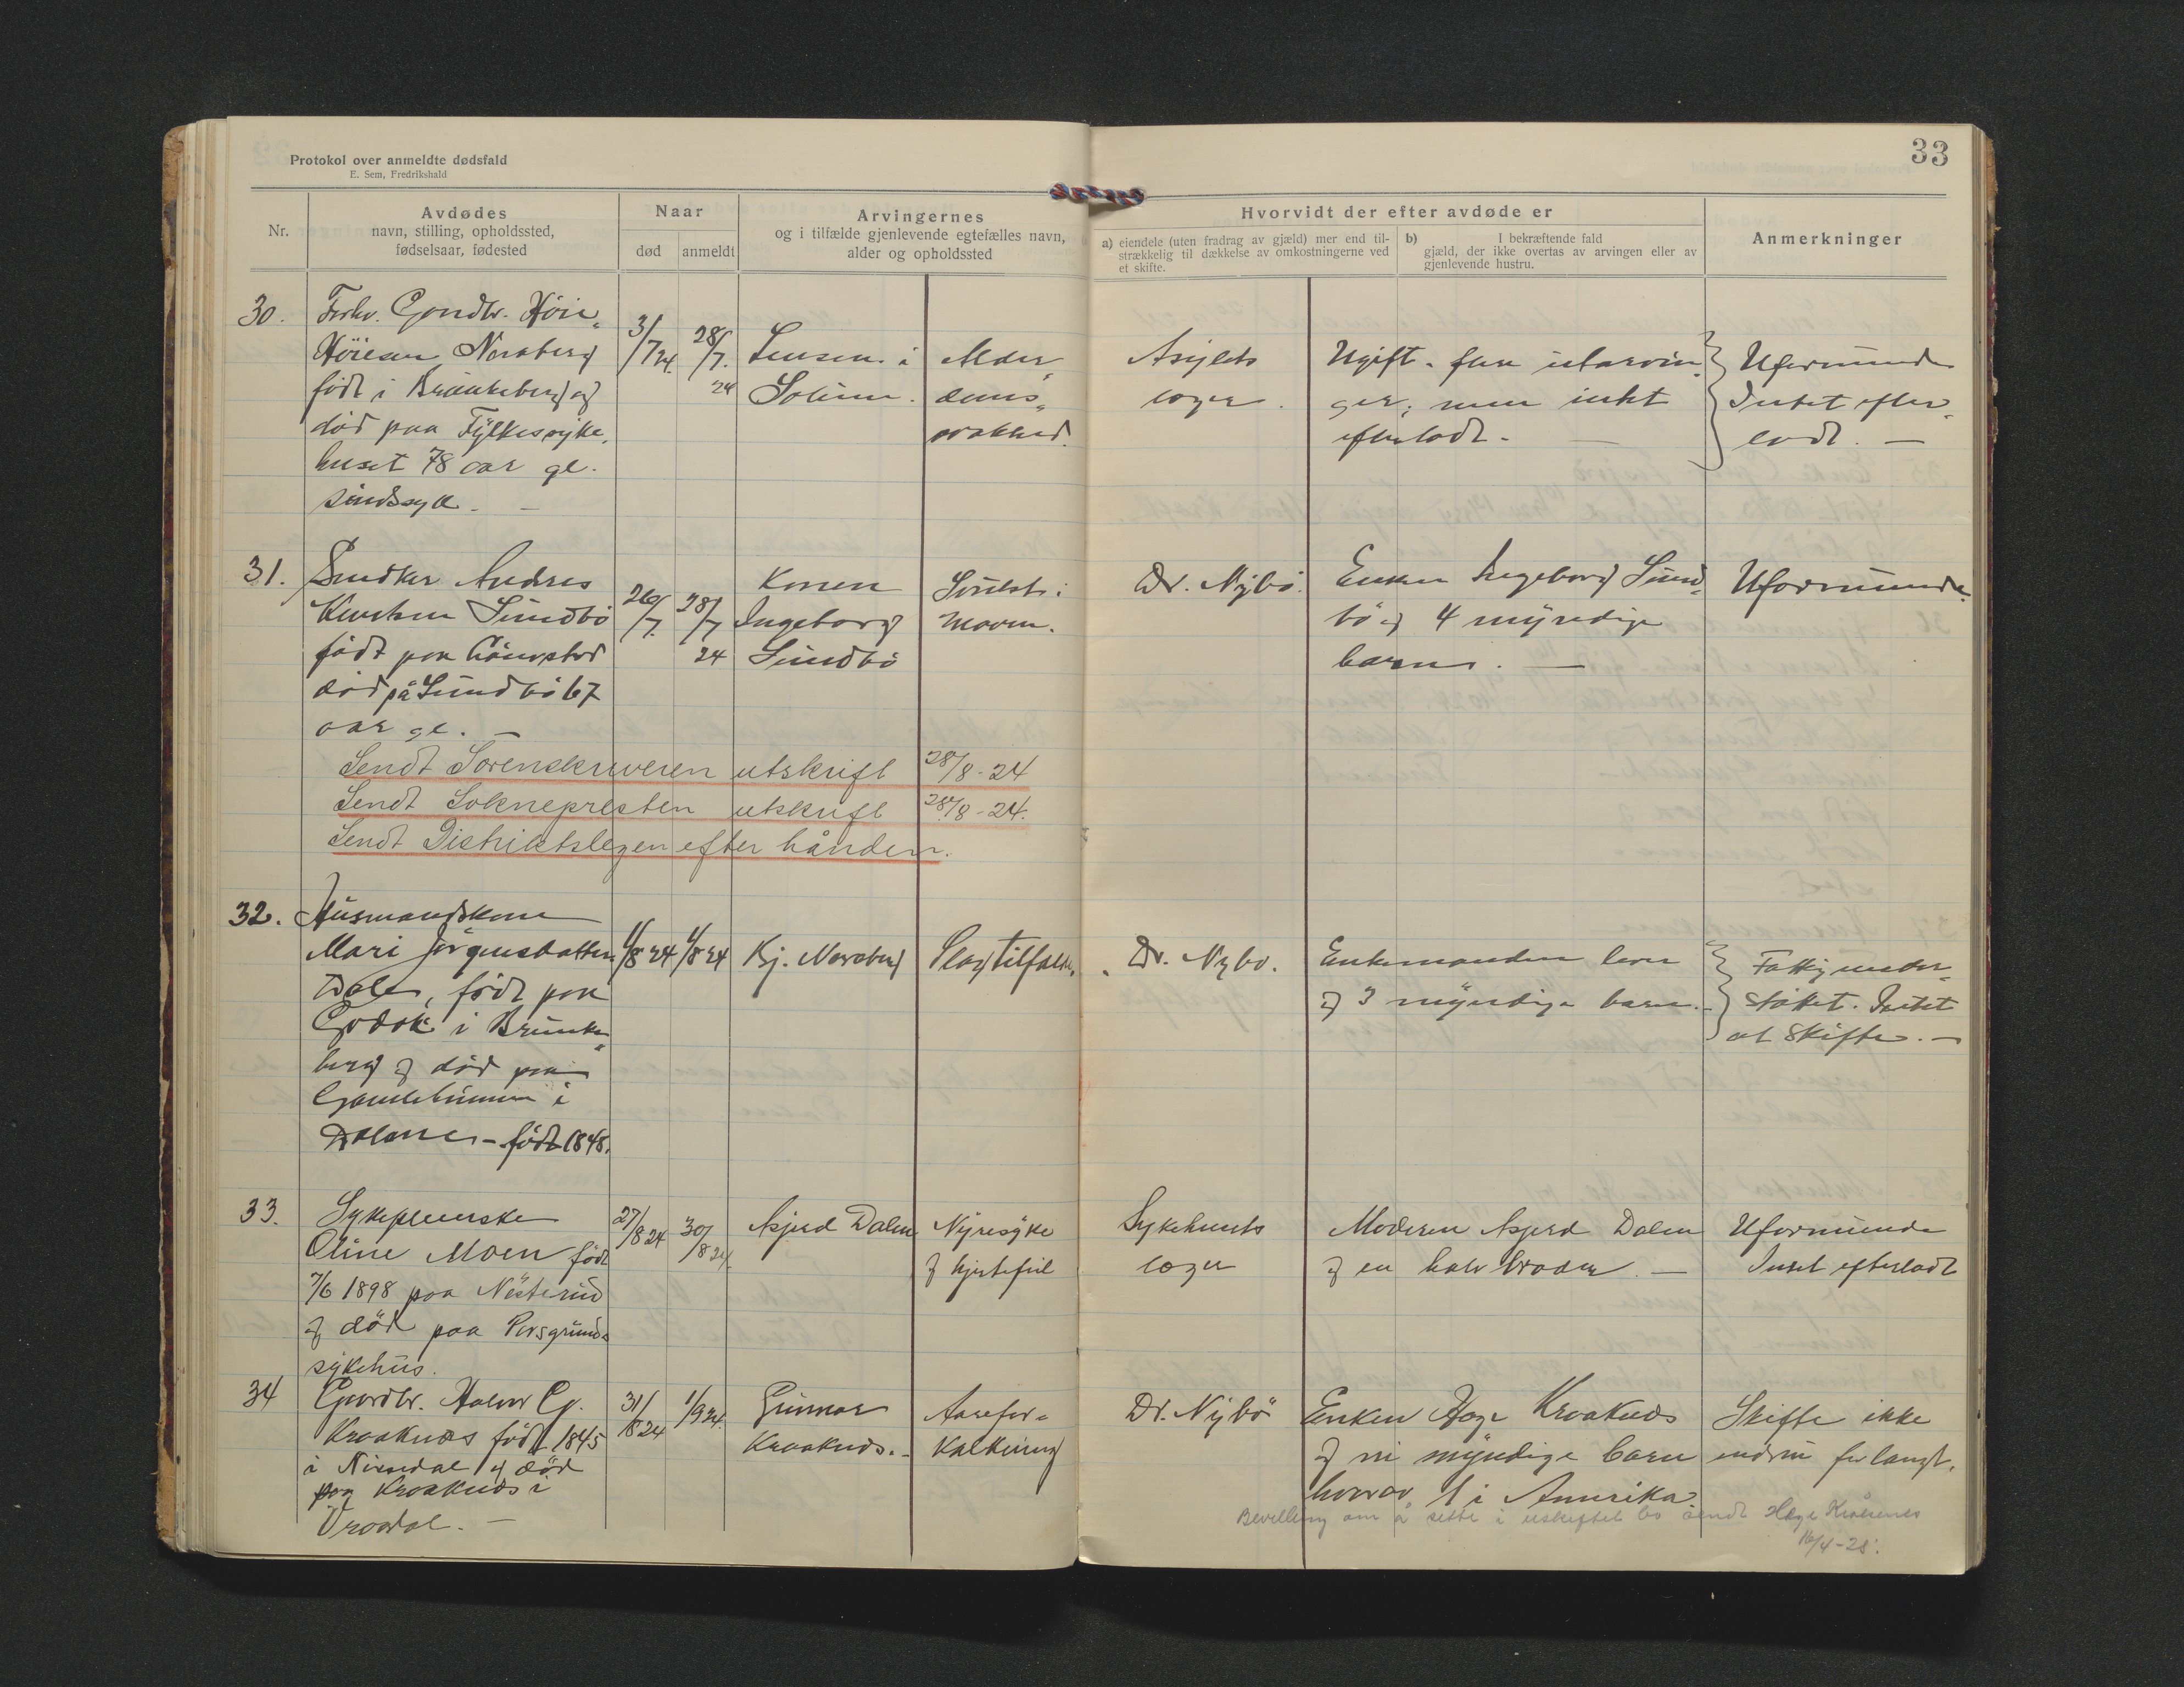 33
Protokol over anmeldte dødsfald
E. Sem, Fredrikshald
Nr.
Avdødes
navn, stilling, opholdssted,
fødselsaar, fødested
Naar
død
anmeldt
Arvingernes
og i tilfælde gjenlevende egtefælles navn,
alder og opholdssted
Hvorvidt der efter avdøde er
a) eiendele (uten fradrag av gjæld) mer end til-
strækkelig til dækkelse av omkostningerne ved
et skifte.
b) I bekræftende fald
gjæld, der ikke overtas av arvingen eller av
gjenlevende hustru.
Anmerkninger
30.
Forhv. Høie
Høiesen Noraberg
født i Brunkeberg og
død paa Fylkessyke,
huset 78 aar gl.
sindssyk
3/7 24.
28/7. 24
Lensm. i
Alder
doms
svakhed.
Asylets
læger.
Ugift.
ger; men intet
efterladt.
Uformuende
Intet efter,
ladt.
31.
Smidker Andres
Sundbö
født paa
død på Sundbö 67
aar gl.
26/7.
28/7 24
Konen
Ingeborg
Sundbö
Dr. Nybö.
Enken Ingeborg Sund
bö og 4 myndige
barn.
Uformuende.
Sendt Sorenskriveren utskrift 28/8-24
Sendt Sokneprесten utskrift 28/8-24.
Sendt Distriktslegen efter hånden.
32.
Husmandskone
Mari Jörgensdatter
Dalen, født paa
i Brunke
berg og død paa
Gamlehimmen i
Dalane - født 1848.
1/8 24
1/8 24
Kj. Noraberg
Slagtilfælde.
Dr. Nybö.
Enkemanden lever
og 3 myndige barn.
Fattigunder
støttet. Intet
at skifte.
33.
Sykepleierske
Oline Moen født
7/6 1898 paa Nesterud
og död paa Porsgrunds
sykehus.
27/8 24
30/8 24.
Asjerd Dalen
Nyresyke
og hjertefeil
Sykehusets
læger
Moderen Asjerd Dalen
og en halvbroder.
Uformuende
Intet efterladt
34
Gaardbr. Halvor G.
Kraaknes født 1845
i Nissedal og död
paa Kraaknes i
Vraadal.
31/8 24
1/9 24.
Gunnar
Kraaknes.
Aarefor-
kalkning
Dr. Nybö
Enken Hæge Kraaknes
og ni myndige barn
hvorav 1 i Amerika.
Skifte ikke
endnu forlangt.
Bevilling om å sitte i uskiftet bo sendt Hæge Kråknes
16/4-28.